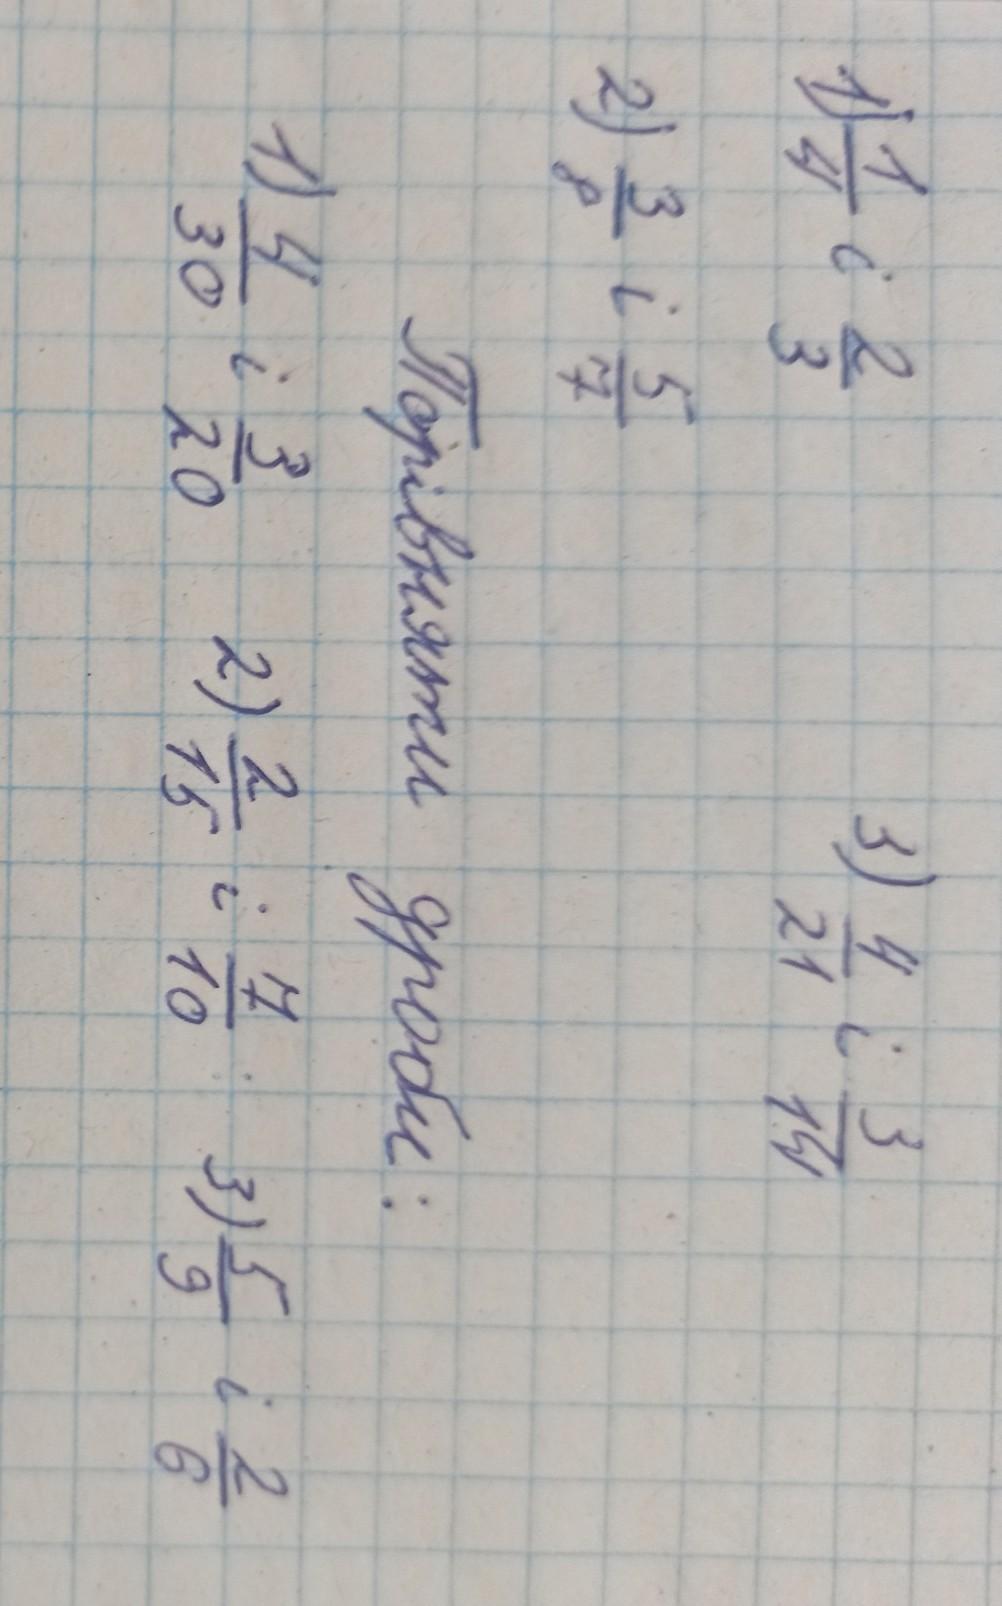 1) 1/4 і 2/3 3) 4/21 і 3/14
2) 3/8 і 5/7
Порівняти дроби:
1) 4/30 і 3/20 2) 2/15 і 7/10 3) 5/9 і 2/6